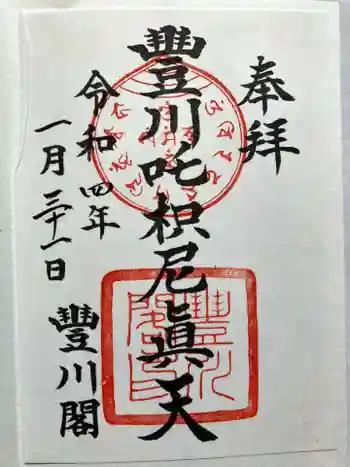 奉拝
豐川吒枳尼眞天
令和四年
一月三十一日
豐川閣